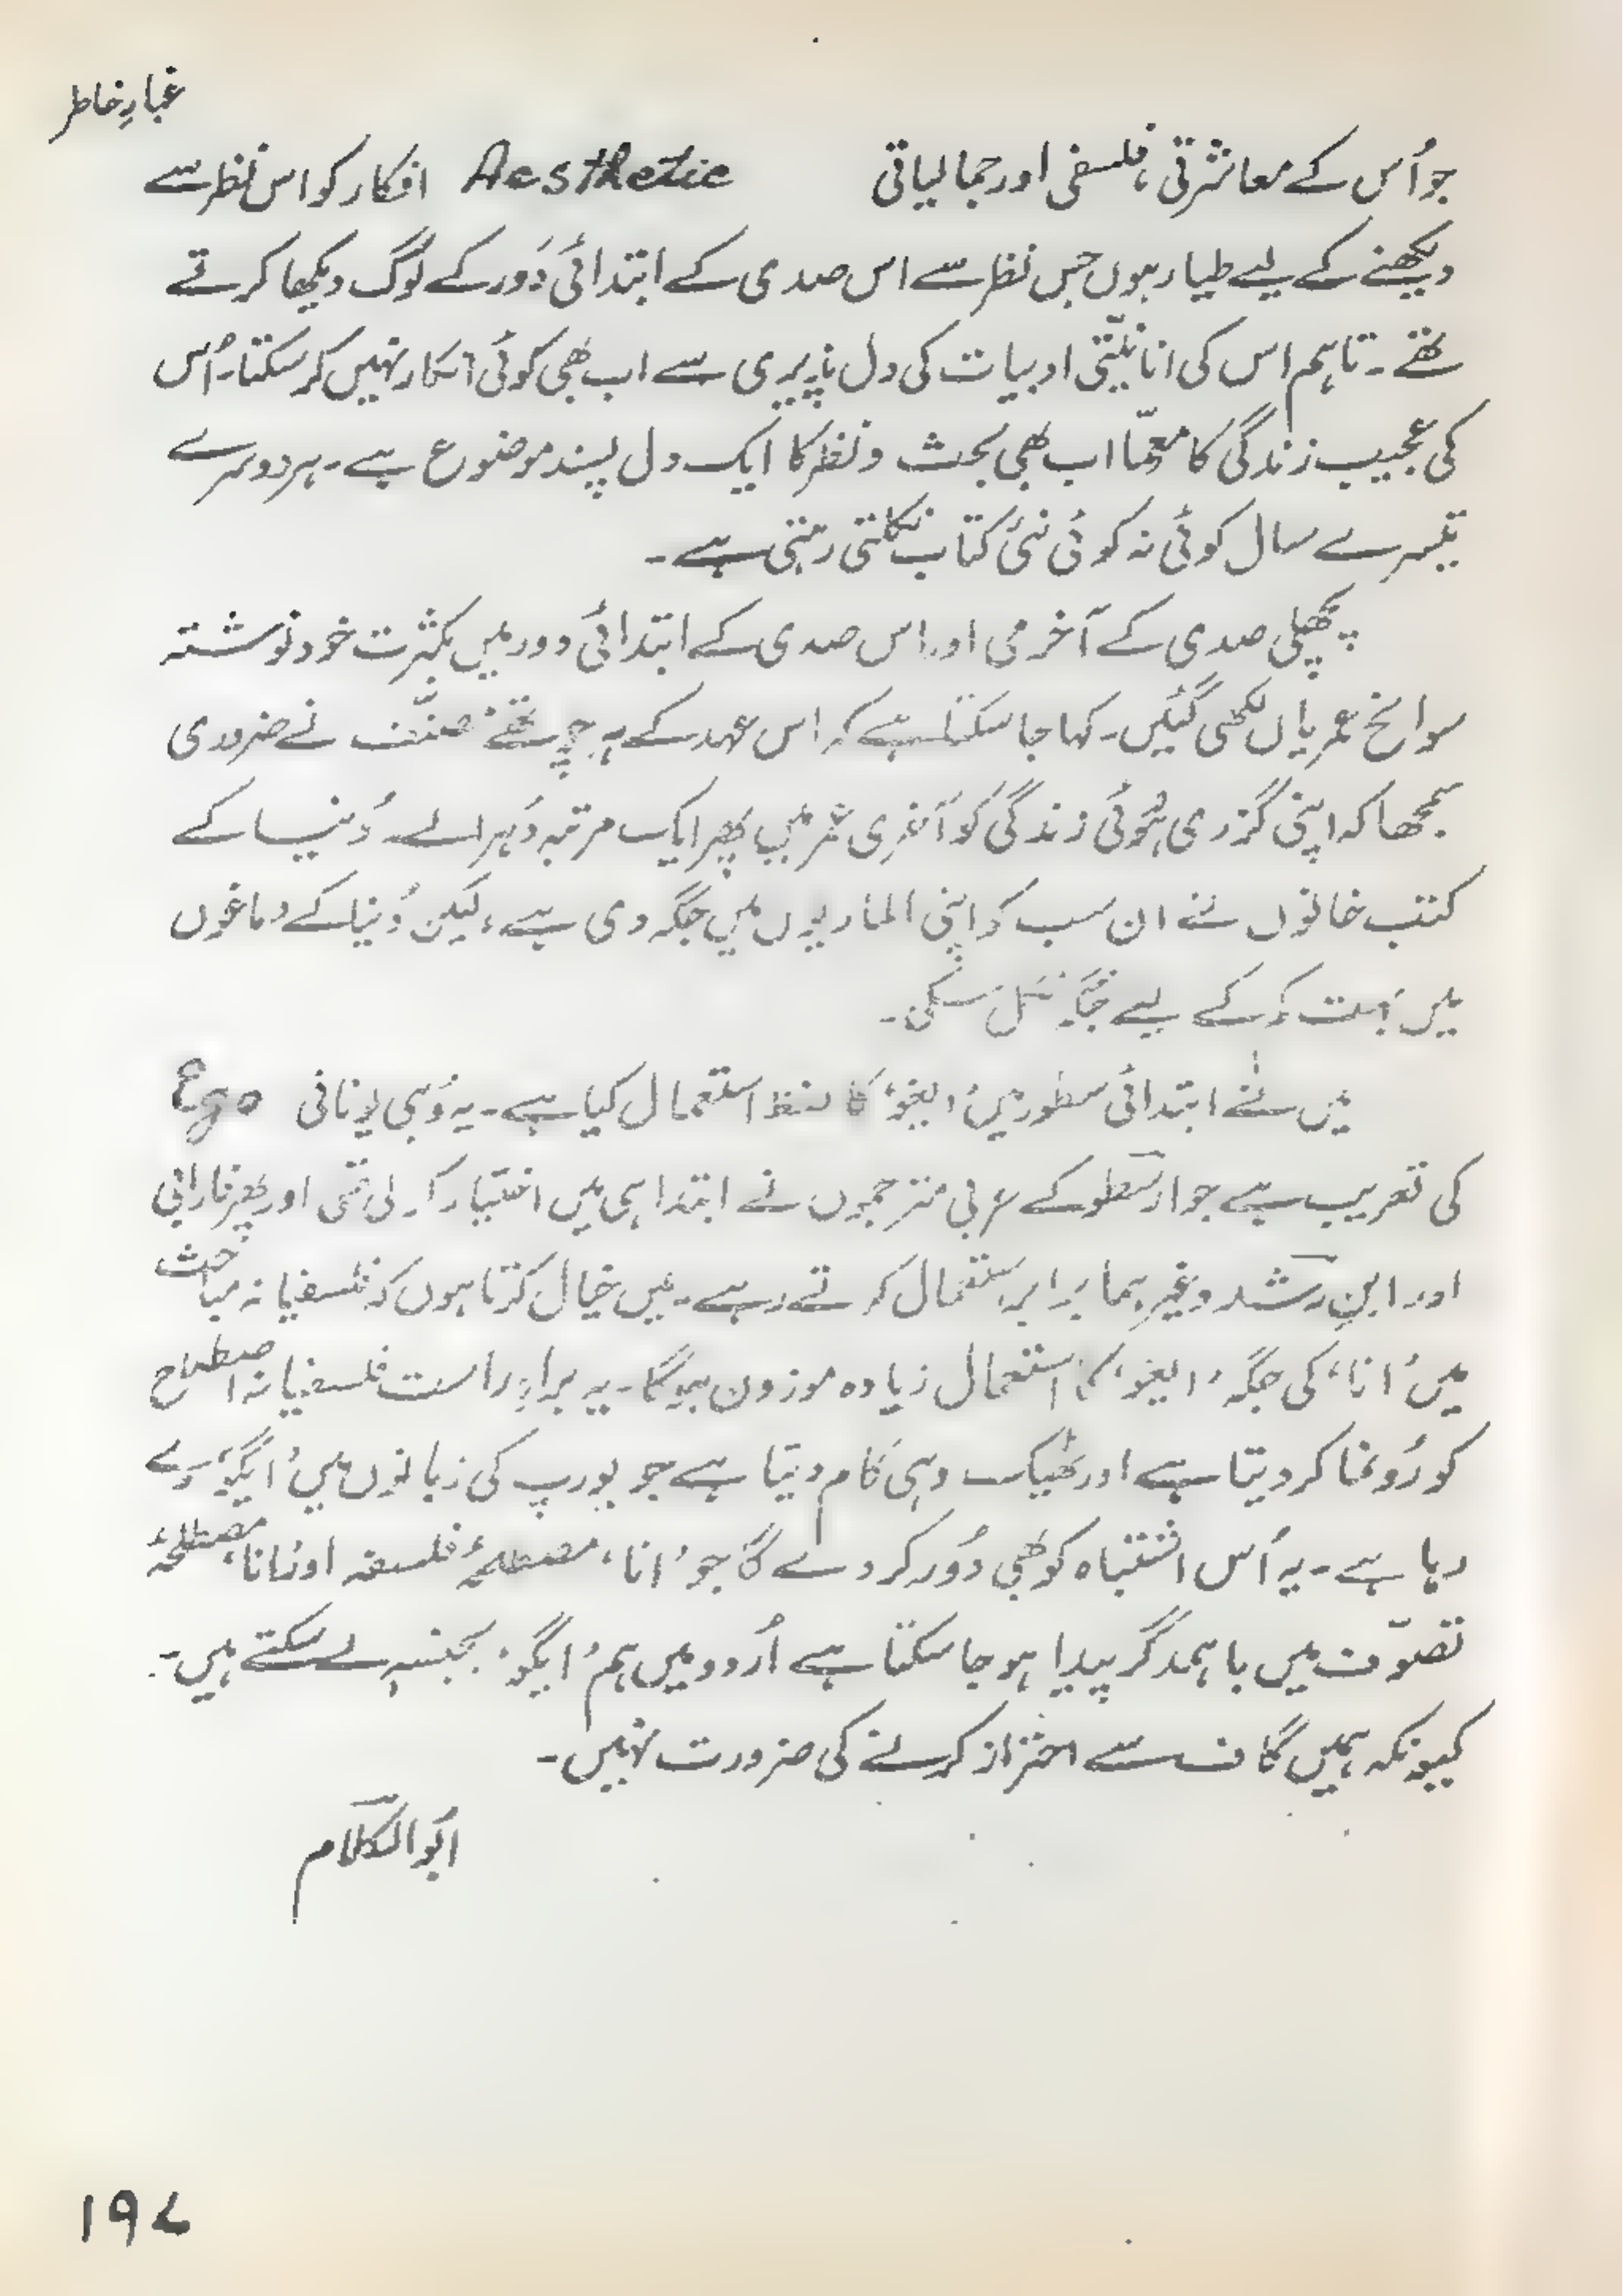 غبارِ خاطر
جو اُس کے معاشرتی، فلسفی اور جمالیاتی Aesthetic افکار کو اس نظر سے
دیکھنے کے لیے طیار ہوں جس نظر سے اس صدی کے ابتدائی دَور کے لوگ دیکھا کرتے
تھے۔ تاہم اس کی انانیّتی ادبیات کی دل پذیری سے اب بھی کوئی انکار نہیں کر سکتا۔ اُس
کی عجیب زندگی کا معمّا اب بھی بحث و نظر کا ایک دل پسند موضوع ہے۔ ہر دوسرے
تیسرے سال کوئی نہ کوئی نئی کتاب نکلتی رہتی ہے۔
پچھلی صدی کے آخری اور اس صدی کے ابتدائی دور میں بکثرت خود نوشتہ
سوانح عمریاں لکھی گئیں۔ کہا جا سکتا ہے کہ اس عہد کے ہر چوتھے مصنّف نے ضروری
سمجھا کہ اپنی گزری ہُوئی زندگی کو آخری عمر میں پھر ایک مرتبہ دُہرالے۔ دُنیا کے
کتب خانوں نے ان سب کو اپنی الماریوں میں جگہ دی ہے، لیکن دُنیا کے دماغوں
میں بہت کم کے لیے جگہ نکل سکی۔
میں نے ابتدائی سطور میں 'ایغو' کا لفظ استعمال کیا ہے۔ یہ وُہی یونانی Ego
کی تعریب ہے جو ارسطو کے عربی مترجموں نے ابتدا ہی میں اختیار کر لی تھی اور پھر فارابی
اور ابنِ رشد وغیرہما برابر استعمال کرتے رہے۔ میں خیال کرتا ہوں کہ فلسفیانہ مباحث
میں 'انا' کی جگہ 'ایغو' کا استعمال زیادہ موزون ہوگا۔ یہ براہِ راست فلسفیانہ اصطلاح
کو رُونما کر دیتا ہے اور ٹھیک وہی کام دیتا ہے جو یورپ کی زبانوں میں 'ایگو' دے
رہا ہے۔ یہ اُس اشتباہ کو بھی دُور کر دے گا جو 'انا' مصطلحۂ فلسفہ اور 'انا' مصطلحۂ
تصوّف میں باہمدگر پیدا ہو جا سکتا ہے اُردو میں ہم 'ایگو' بجنسہٖ لے سکتے ہیں۔
کیونکہ ہمیں گاف سے احتراز کرنے کی ضرورت نہیں۔
ابُوالکلام
۱۹۷